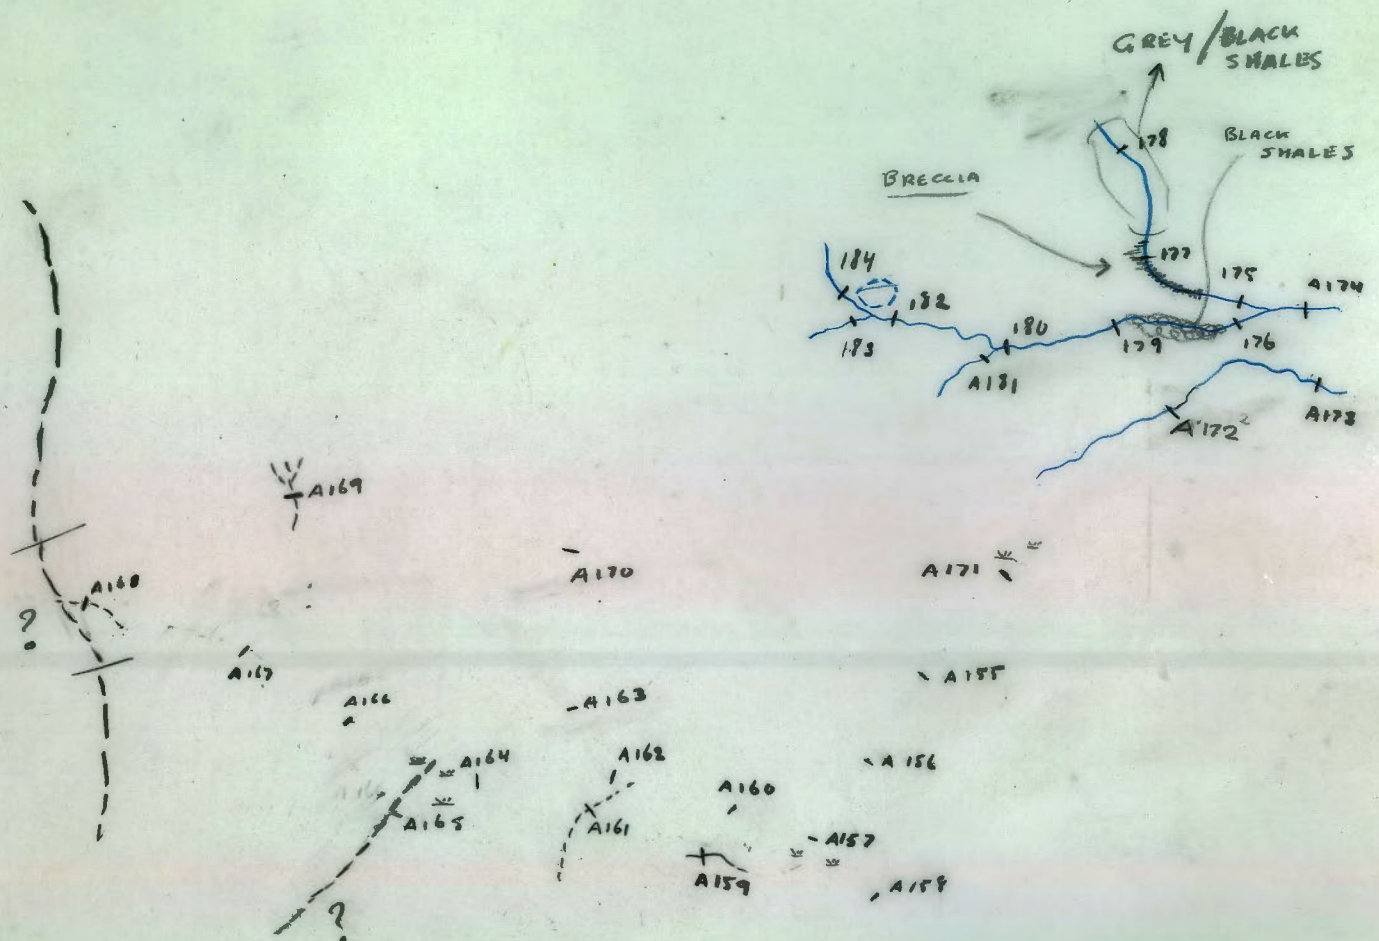 GREY/BLACK
SHALES
178
BLACK
SHALES
BRECCIA
177
184
175
A174
182
180
183
179
176
A181
A172
A173
A169
A170
A171
A168
?
A167
A155
A166
A163
A164
A162
A156
A160
A165
A161
A157
A159
A158
?